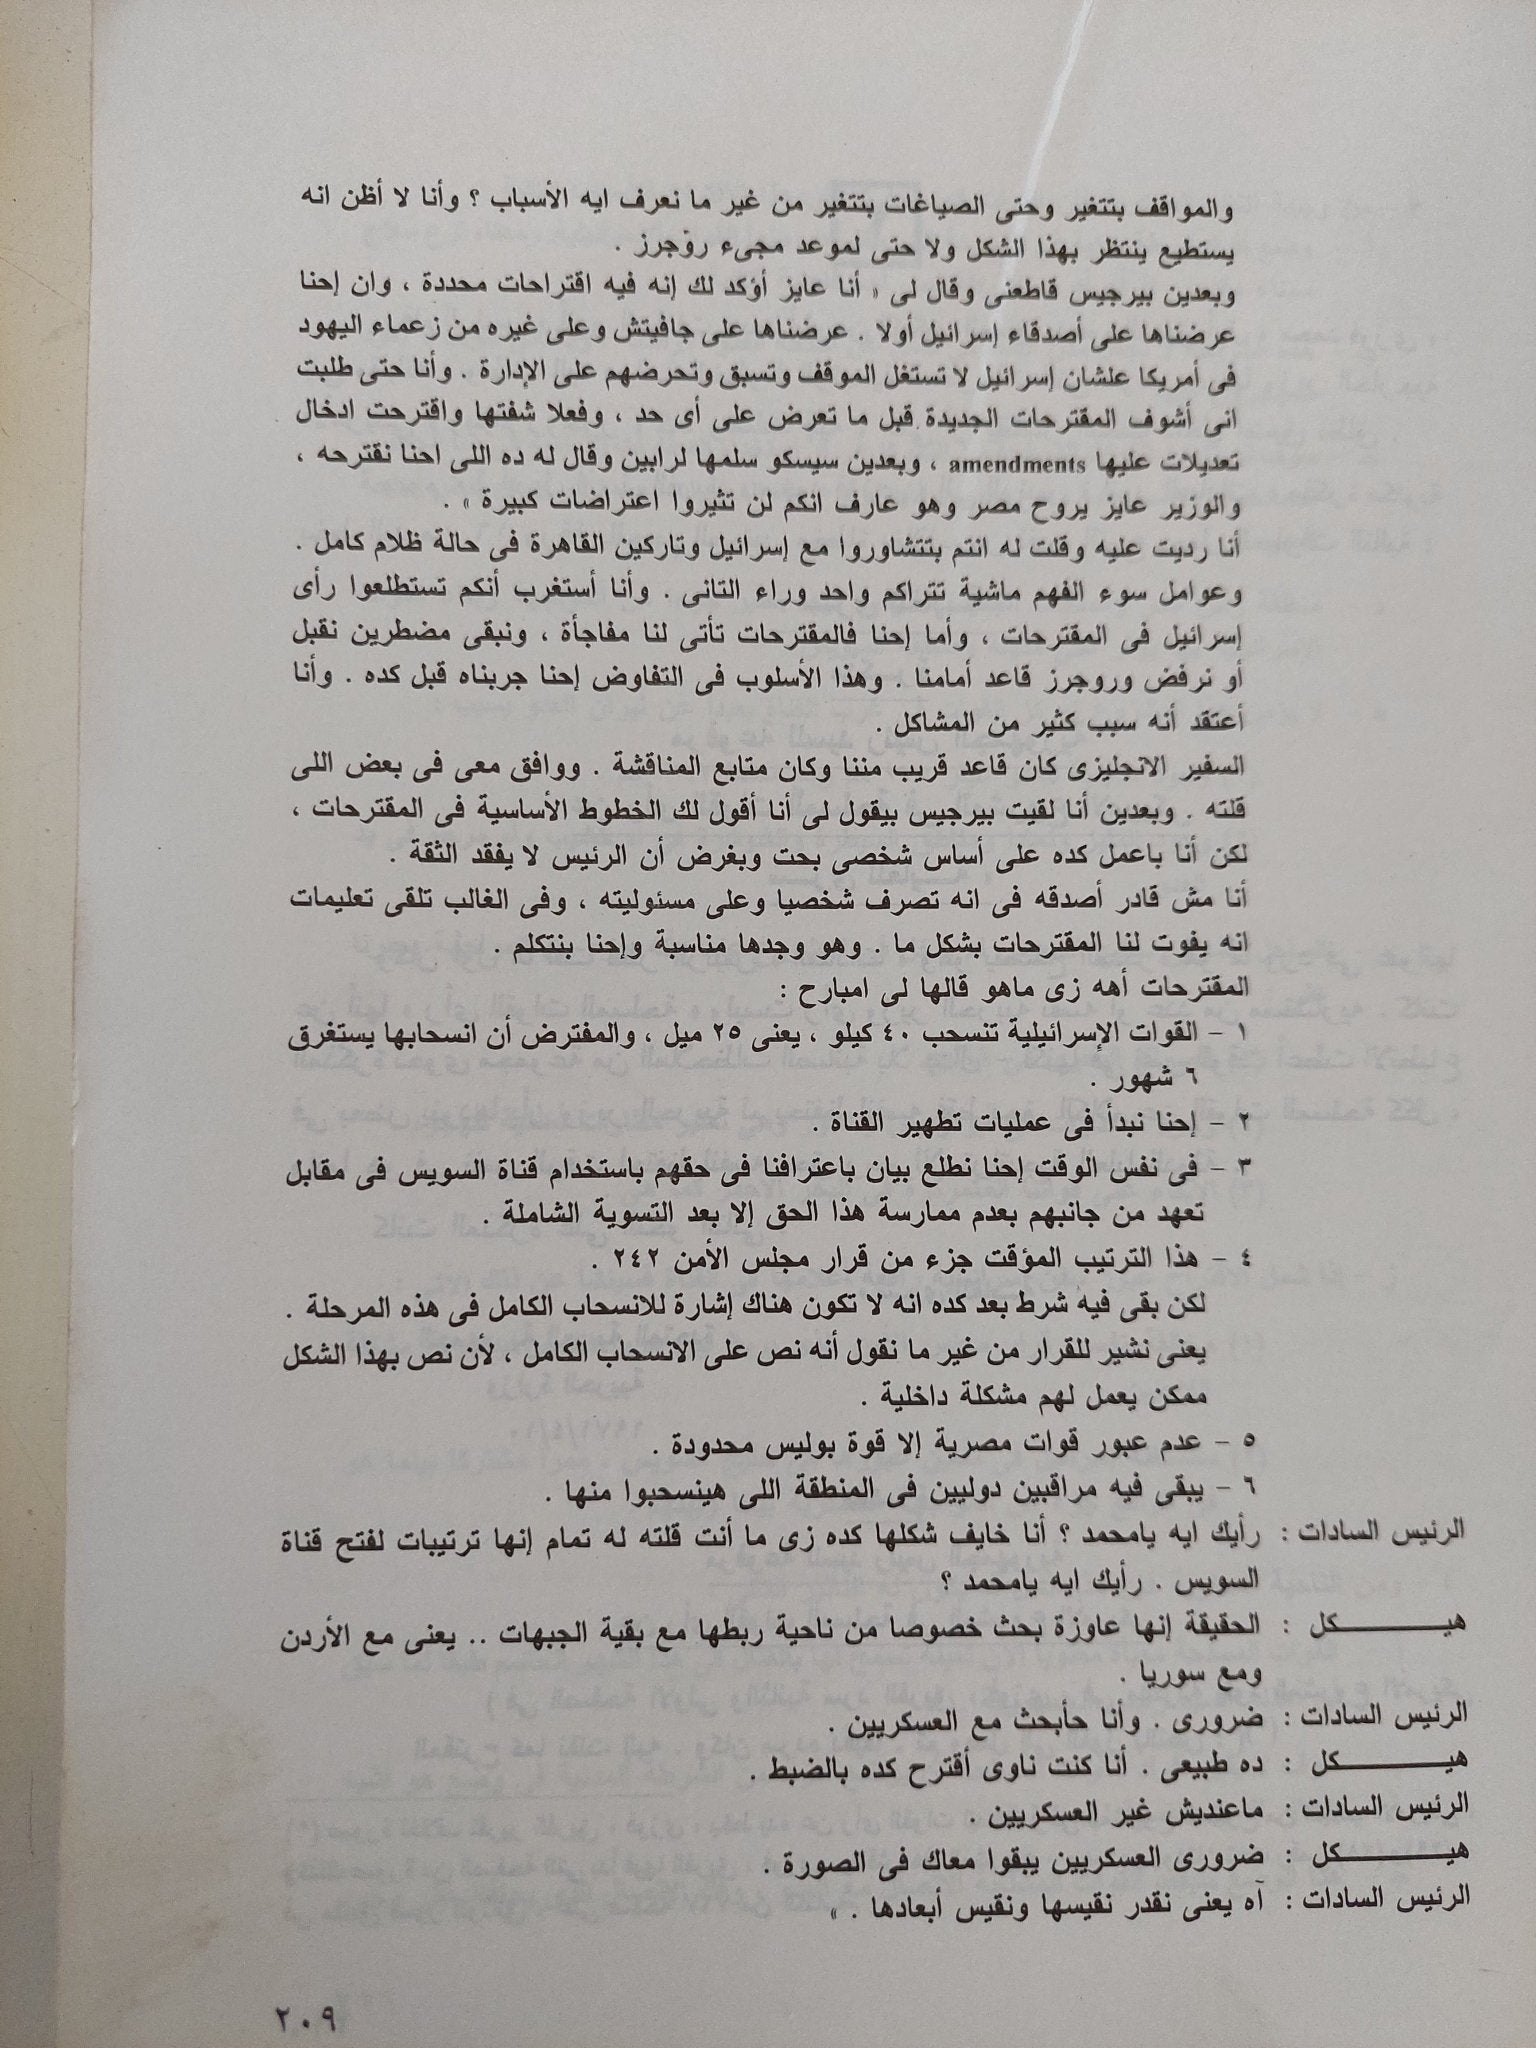 والمواقف بتتغير وحتى الصياغات بتتغير من غير ما نعرف ايه الأسباب ؟ وأنا لا أظن انه
يستطيع ينتظر بهذا الشكل ولا حتى لموعد مجىء روجرز .
وبعدين بيرجيس قاطعنى وقال لى « أنا عايز أؤكد لك إنه فيه اقتراحات محددة ، وان إحنا
عرضناها على أصدقاء إسرائيل أولا . عرضناها على جافيتش وعلى غيره من زعماء اليهود
فى أمريكا علشان إسرائيل لا تستغل الموقف وتسبق وتحرضهم على الإدارة . وأنا حتى طلبت
انى أشوف المقترحات الجديدة قبل ما تعرض على أى حد ، وفعلا شفتها واقترحت ادخال
تعديلات عليها amendments ، وبعدين سيسكو سلمها لرابين وقال له ده اللى احنا نقترحه ،
والوزير عايز يروح مصر وهو عارف انكم لن تثيروا اعتراضات كبيرة » .
أنا رديت عليه وقلت له انتم بتتشاوروا مع إسرائيل وتاركين القاهرة فى حالة ظلام كامل .
وعوامل سوء الفهم ماشية تتراكم واحد وراء التانى . وأنا أستغرب أنكم تستطلعوا رأى
إسرائيل فى المقترحات ، وأما إحنا فالمقترحات تأتى لنا مفاجأة ، ونبقى مضطرين نقبل
أو نرفض وروجرز قاعد أمامنا . وهذا الأسلوب فى التفاوض إحنا جربناه قبل كده . وأنا
أعتقد أنه سبب كثير من المشاكل .
السفير الانجليزى كان قاعد قريب مننا وكان متابع المناقشة . ووافق معى فى بعض اللى
قلته . وبعدين أنا لقيت بيرجيس بيقول لى أنا أقول لك الخطوط الأساسية فى المقترحات ،
لكن أنا باعمل كده على أساس شخصى بحت وبغرض أن الرئيس لا يفقد الثقة .
أنا مش قادر أصدقه فى انه تصرف شخصيا وعلى مسئوليته ، وفى الغالب تلقى تعليمات
انه يفوت لنا المقترحات بشكل ما . وهو وجدها مناسبة وإحنا بنتكلم .
المقترحات أهه زى ماهو قالها لى امبارح :
١ – القوات الإسرائيلية تنسحب ٤٠ كيلو ، يعنى ٢٥ ميل ، والمفترض أن انسحابها يستغرق
٦ شهور .
٢ – إحنا نبدأ فى عمليات تطهير القناة .
٣ – فى نفس الوقت إحنا نطلع بيان باعترافنا فى حقهم باستخدام قناة السويس فى مقابل
تعهد من جانبهم بعدم ممارسة هذا الحق إلا بعد التسوية الشاملة .
٤ – هذا الترتيب المؤقت جزء من قرار مجلس الأمن ٢٤٢ .
لكن بقى فيه شرط بعد كده انه لا تكون هناك إشارة للانسحاب الكامل فى هذه المرحلة .
يعنى نشير للقرار من غير ما نقول أنه نص على الانسحاب الكامل ، لأن نص بهذا الشكل
ممكن يعمل لهم مشكلة داخلية .
٥ – عدم عبور قوات مصرية إلا قوة بوليس محدودة .
٦ – يبقى فيه مراقبين دوليين فى المنطقة اللى هينسحبوا منها .
الرئيس السادات : رأيك ايه يامحمد ؟ أنا خايف شكلها كده زى ما أنت قلته له تمام إنها ترتيبات لفتح قناة
السويس . رأيك ايه يامحمد ؟
هيـــــــكل : الحقيقة إنها عاوزة بحث خصوصا من ناحية ربطها مع بقية الجبهات .. يعنى مع الأردن
ومع سوريا .
الرئيس السادات : ضرورى . وأنا حأبحث مع العسكريين .
هيـــــــكل : ده طبيعى . أنا كنت ناوى أقترح كده بالضبط .
الرئيس السادات : ماعنديش غير العسكريين .
هيـــــــكل : ضرورى العسكريين يبقوا معاك فى الصورة .
الرئيس السادات : آه يعنى نقدر نقيسها ونقيس أبعادها . »
٢٠٩